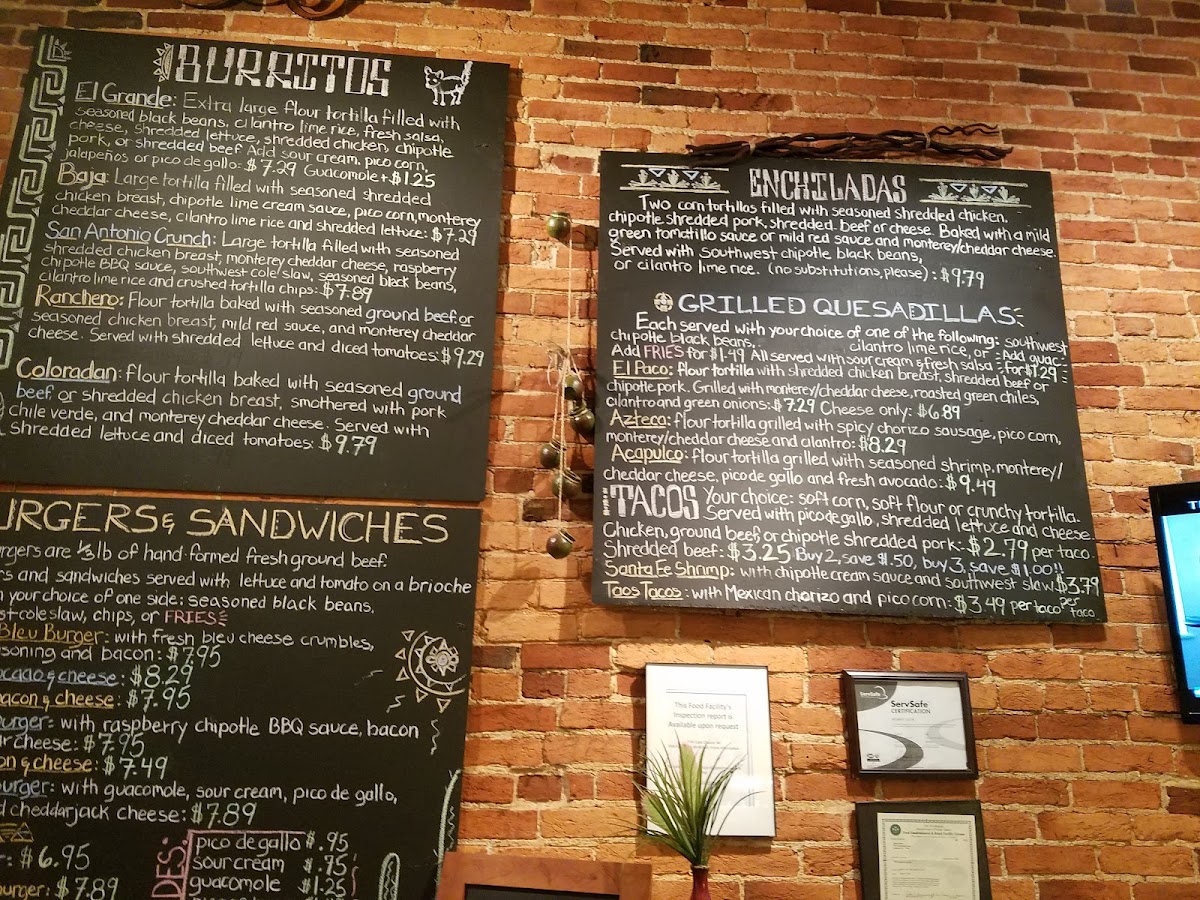 BURRITOS
El Grande: Extra large flour tortilla filled with
seasoned black beans, cilantro lime rice, fresh salsa,
cheese, shredded lettuce, shredded chicken, chipotle
pork, or shredded beef Add sour cream, pico corn,
jalapeños or pico de gallo: $7.29 Guacomole + $1.25
Baja: Large tortilla filled with seasoned shredded
chicken breast, chipotle lime cream sauce, pico corn, monterey
cheddar cheese, cilantro lime rice and shredded lettuce: $7.29
San Antonio Crunch: Large tortilla filled with seasoned
shredded chicken breast, monterey cheddar cheese, raspberry
chipotle BBQ sauce, southwest cole slaw, seasoned black beans,
cilantro lime rice and crushed tortilla chips: $7.89
Ranchero: Flour tortilla baked with seasoned ground beef or
seasoned chicken breast, mild red sauce, and monterey cheddar
cheese. Served with shredded lettuce and diced tomatoes: $9.29
Coloradan: flour tortilla baked with seasoned ground
beef or shredded chicken breast, smothered with pork
chile verde, and monterey cheddar cheese. Served with
shredded lettuce and diced tomatoes: $9.79
URGERS & SANDWICHES
urgers are 1/3 lb of hand-formed fresh ground beef.
rs and sandwiches served with lettuce and tomato on a brioche
your choice of one side: seasoned black beans,
st coleslaw, chips, or FRIES
Bleu Burger: with fresh bleu cheese crumbles,
soning and bacon: $7.95
ocado & cheese: $8.29
bacon & cheese: $7.95
burger: with raspberry chipotle BBQ sauce, bacon
ar cheese: $7.95
on & cheese: $7.49
burger: with guacomole, sour cream, pico de gallo,
d cheddarjack cheese: $7.89
r: $6.95
burger: $7.89
DES:
pico de gallo $.95
sour cream $.75
guacomole $1.25
ENCHILADAS
Two corn tortillas filled with seasoned shredded chicken,
chipotle shredded pork, shredded beef or cheese. Baked with a mild
green tomatillo sauce or mild red sauce and monterey/cheddar cheese.
Served with Southwest chipotle black beans,
or cilantro lime rice. (no substitutions, please): $9.79
GRILLED QUESADILLAS
Each served with your choice of one of the following: southwest
chipotle black beans, cilantro lime rice, or
Add FRIES for $1.49 All served with sour cream & fresh salsa Add guac for $1.29
El Paco: flour tortilla with shredded chicken breast, shredded beef or
chipotle pork. Grilled with monterey/cheddar cheese, roasted green chiles,
cilantro and green onions: $7.29 Cheese only: $6.89
Azteca: flour tortilla grilled with spicy chorizo sausage, pico corn,
monterey/cheddar cheese and cilantro: $8.29
Acapulco: flour tortilla grilled with seasoned shrimp, monterey/
cheddar cheese, pico de gallo and fresh avocado: $9.49
TACOS Your choice: soft corn, soft flour or crunchy tortilla.
Served with pico de gallo, shredded lettuce and cheese
Chicken, ground beef, or chipotle shredded pork: $2.79 per taco
Shredded beef: $3.25 Buy 2, save $.50, buy 3, save $1.00!!
Santa Fe Shrimp: with chipotle cream sauce and southwest slaw $3.79 per taco
Taos Tacos: with Mexican chorizo and pico corn: $3.49 per taco
This Food Facility's
Inspection report is
Available upon request
ServSafe
ServSafe
CERTIFICATION